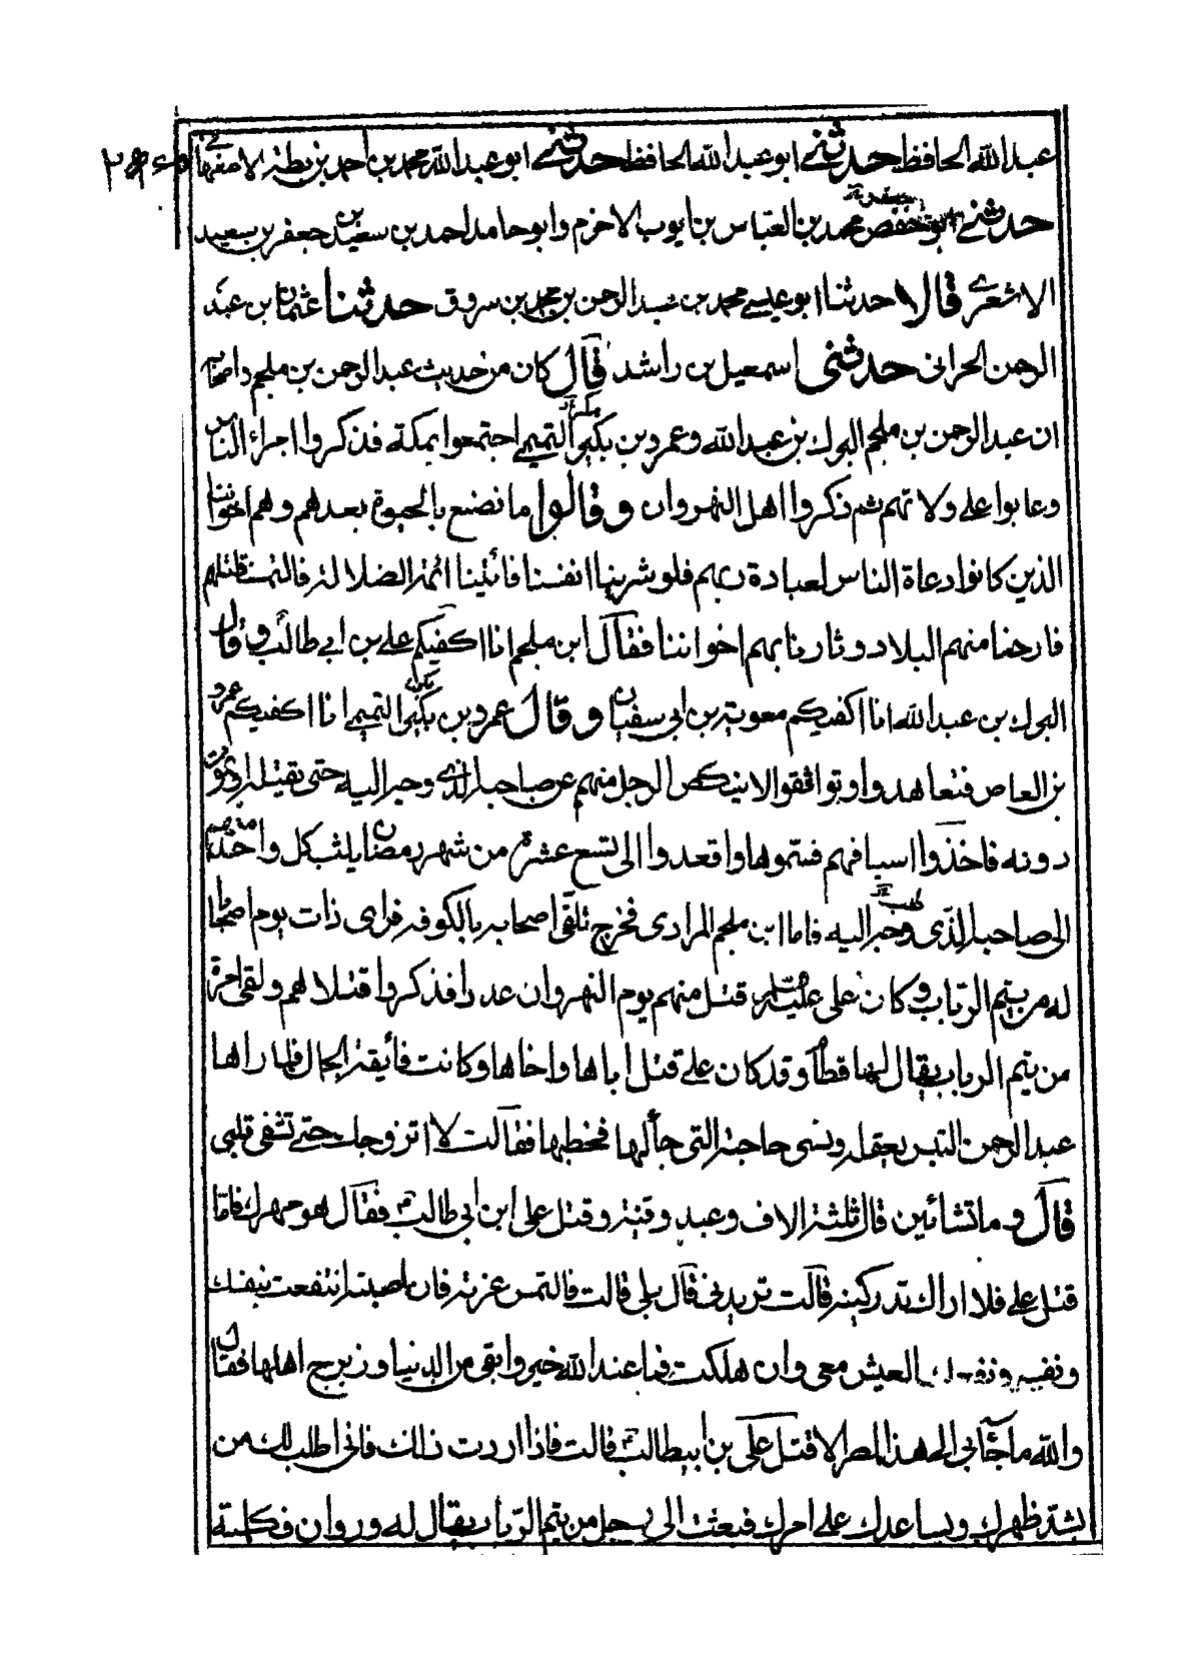 عبدالله الحافظ حدثني ابو عبدالله الحافظ حدثني ابو عبدالله محمد بن احمد بن بطة الاصفهاني
حدثني ابو حفص محمد بن العباس بن ايوب الاخرم وابو حامد احمد بن جعفر بن سعيد
الاشعرى قالا حدثنا ابو عيسى محمد بن عبد الرحمن بن محمد بن مسروق حدثنا عثمان بن عبد
الرحمن الحرانى حدثنى اسمعيل بن راشد قال كان من حديث عبد الرحمن بن ملجم واصحابه
ان عبد الرحمن بن ملجم البرك بن عبد الله وعمرو بن بكير التميمي اجتمعوا بمكة فذكروا امر الناس
وعابوا على ولاتهم ثم ذكروا اهل النهروان وقالوا ما نصنع بالحيوة بعدهم وهم اخواننا
الذين كانوا دعاة الناس لعبادة ربهم فلو شرينا انفسنا فأتينا ائمة الضلالة فالتمسنا قتلهم
فارحنا منهم البلاد وثارنا بهم اخواننا فقال ابن ملجم انا اكفيكم على بن ابي طالب وقال
البرك بن عبد الله انا اكفيكم معوية بن ابى سفيان وقال عمرو بن بكير التميمي انا اكفيكم عمرو
بن العاص فتعاهدوا وتواثقوا لا ينكص الرجل منهم عن صاحبه الذى وجه اليه حتى يقتله او يموت
دونه فاخذوا اسيافهم فسموها واقعدوا الى تسع عشرة من شهر رمضان يثب كل واحد منهم
الى صاحبه الذى وجه اليه فاما ابن ملجم المرادى فخرج تلقى اصحابه بالكوفة فراى ذات يوم اصحابا
له من تيم الرباب وكان على قتل منهم يوم النهروان عددا فذكروا قتلاهم ولقى امرة
من تيم الرباب يقال لها قطام وقد كان على قتل اباها واخاها وكانت فائقة الجمال فلما راها
عبد الرحمن التبس بعقله ونسى حاجته التى جاء لها فخطبها فقالت لا اتزوجك حتى تشفى قلبى
قال وما تشائين قال ثلثة الاف وعبد وقنية وقتل على ابن ابى طالب فقال هو مهرك فاما
قتل على فلا اراك تدركينه قالت تريدنى قال بلى قالت فالتمس غرته فان اصبته انتفعت بنفسك
ونفسى العيش معى وان هلكت فما عند الله خير وابقى من الدنيا وزبرج اهلها فقال
والله ما جاء بى الى هذا المصر الا قتل على بن ابيطالب قالت فاذا اردت ذلك فانى اطلب لك من
يشد ظهرك ويساعدك على امرك فبعثت الى رجل من تيم الرباب يقال له وروان فكلمته